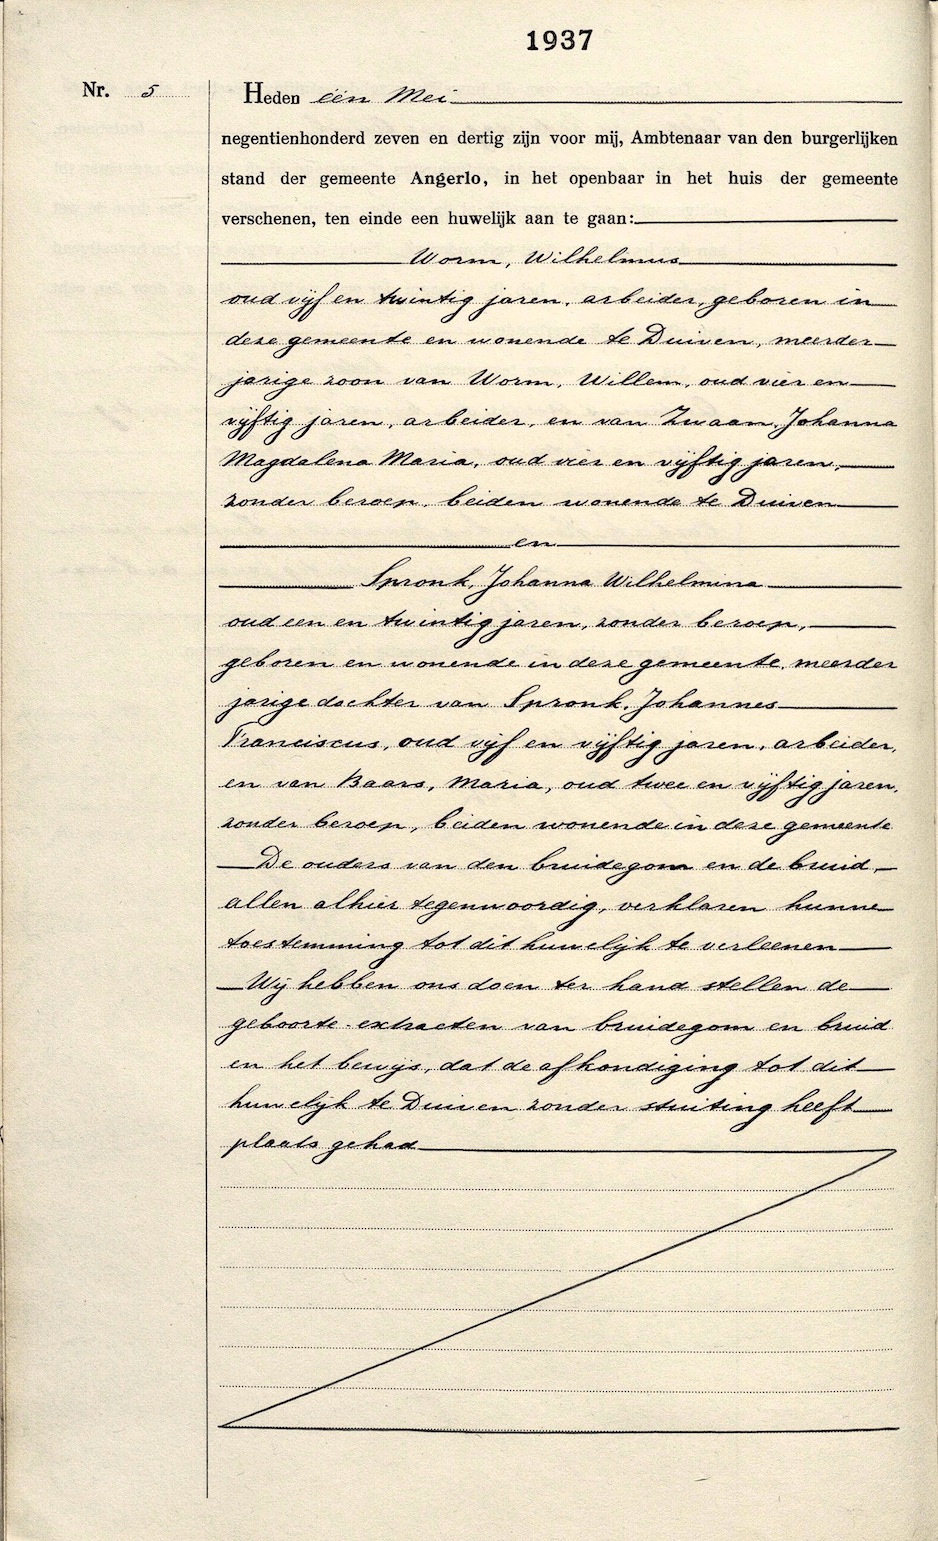 1937
Nr. 5
Heden één Mei
negentienhonderd zeven en dertig zijn voor mij, Ambtenaar van den burgerlijken
stand der gemeente Angerlo, in het openbaar in het huis der gemeente
verschenen, ten einde een huwelijk aan te gaan:
Worm, Wilhelmus
oud vijf en twintig jaren, arbeider, geboren in
deze gemeente en wonende te Duiven, meerder-
jarige zoon van Worm, Willem, oud vier en
vijftig jaren, arbeider, en van Zwaan, Johanna
Magdalena Maria, oud vier en vijftig jaren,
zonder beroep, beiden wonende te Duiven
en
Spronk, Johanna Wilhelmina
oud een en twintig jaren, zonder beroep,
geboren en wonende in deze gemeente, meerder
jarige dochter van Spronk, Johannes
Franciscus, oud vijf en vijftig jaren, arbeider,
en van Baars, Maria, oud twee en vijftig jaren,
zonder beroep, beiden wonende in deze gemeente
De ouders van den bruidegom en de bruid,
allen alhier tegenwoordig, verklaren hunne
toestemming tot dit huwelijk te verleenen
Wij hebben ons doen ter hand stellen de
geboorte-extracten van bruidegom en bruid
en het bewijs, dat de afkondiging tot dit
huwelijk te Duiven zonder stuiting heeft
plaats gehad